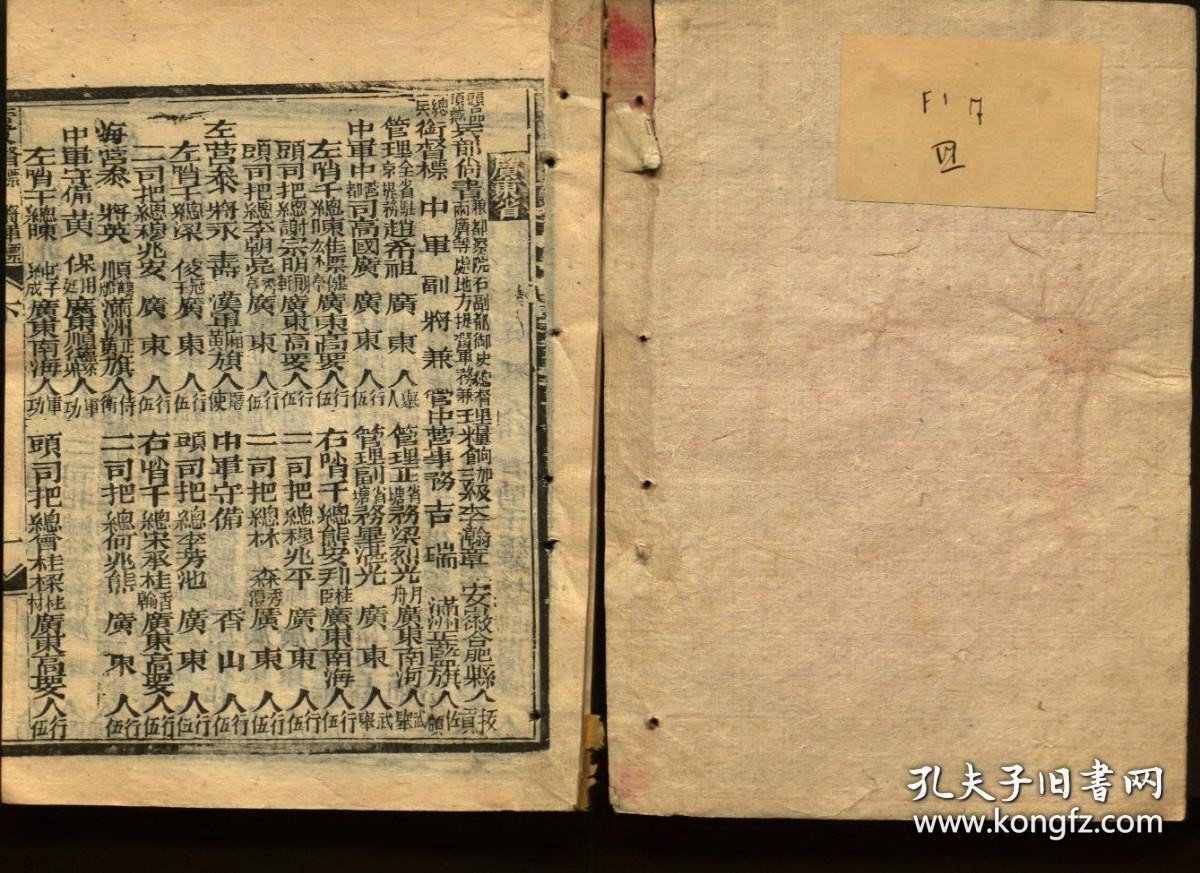 廣東省
頭品頂戴兵部尚書兼都察院右副都御史總督兩廣等處地方提督軍務兼理糧餉加三級李瀚章 安徽合肥縣人拔貢
總兵銜督標中軍副將兼管中營事務吉瑞 滿洲旗人佐領
管理全省駐京提務趙希祖 廣東人舉人 管理正省塘務梁烈光月舟廣東南海人武舉
中軍中營都司高國廣 廣東人行伍 管理副省塘務畢湛光 廣東人武舉
左哨千總陳 廣東高要人行伍 右哨千總熊安 廣東南海人行伍
頭司把總謝宗明 廣東高要人行伍 二司把總穆兆平 廣東人行伍
頭司把總李朝亮 廣東人行伍 二司把總林森秀 廣東人行伍
左營叅將永壽 漢軍廂黃旗人 中軍守備 香山人行伍
左哨千總梁俊 廣東人行伍 頭司把總李芳池 廣東人行伍
二司把總穆兆安 廣東人行伍 右哨千總宋承桂香翰廣東高要人行伍
叅將英順 滿洲正黃旗人侍衛 二司把總何兆熊 廣東人行伍
中軍守備黃保 廣東順德縣人軍功
左哨千總陳 廣東南海人軍功 頭司把總曾桂樑桂材廣東高要人行伍
督標
六
F17
孔夫子旧书网
www.kongfz.com